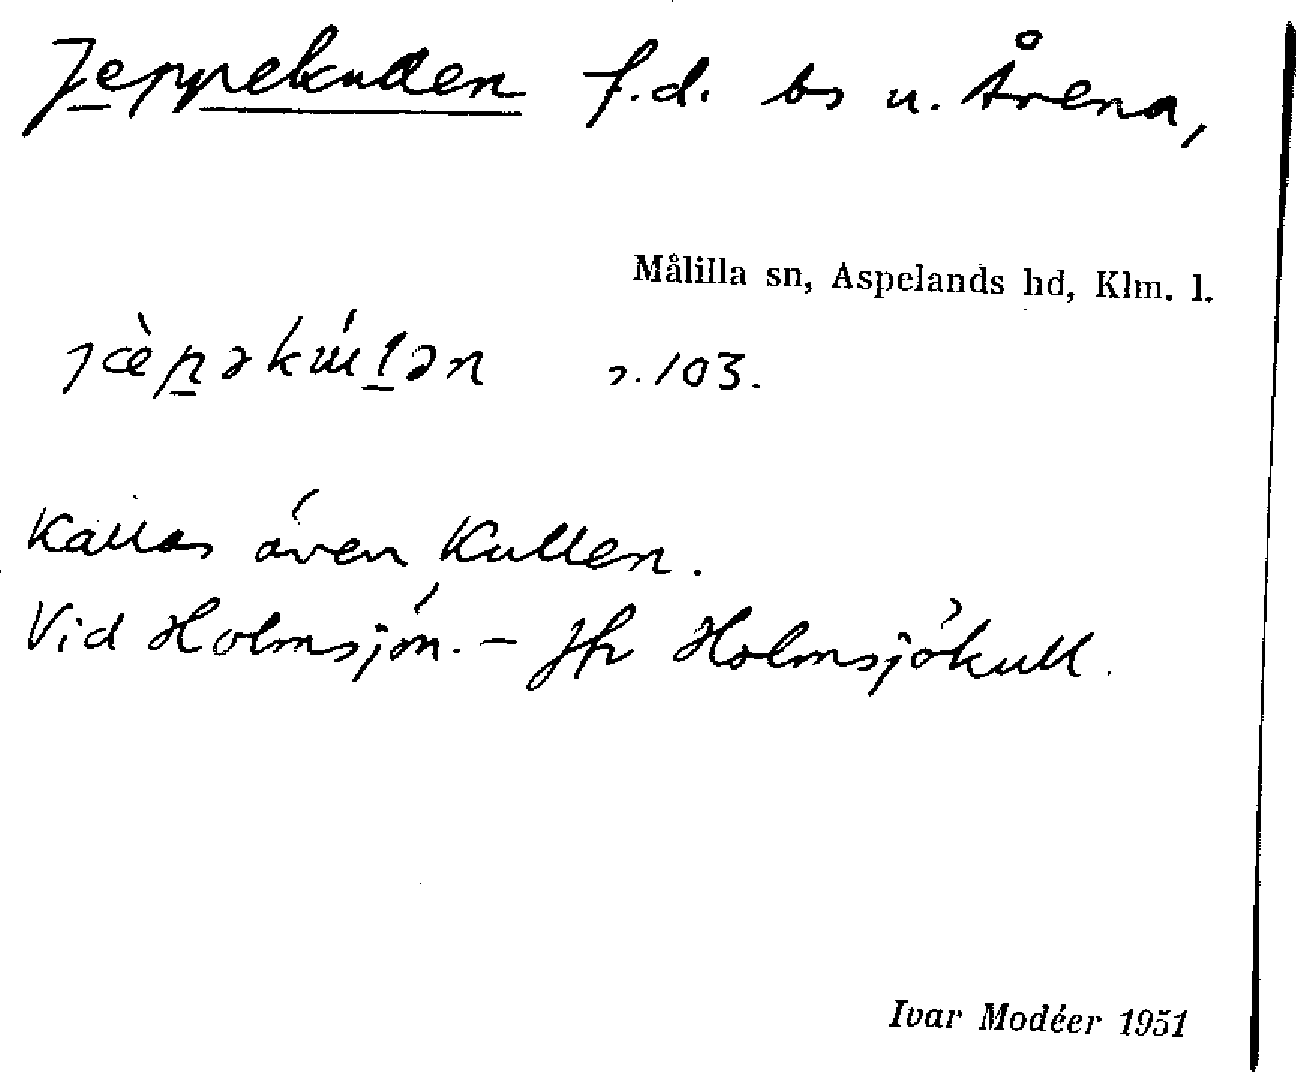 Jeppekullen f.d. bs u. Årena,
Målilla sn, Aspelands hd, Klm. l.
103.
Kallas även Kullen.
Vid Holmsjön. – Jfr Holmsjökull.
Ivar Modéer 1951